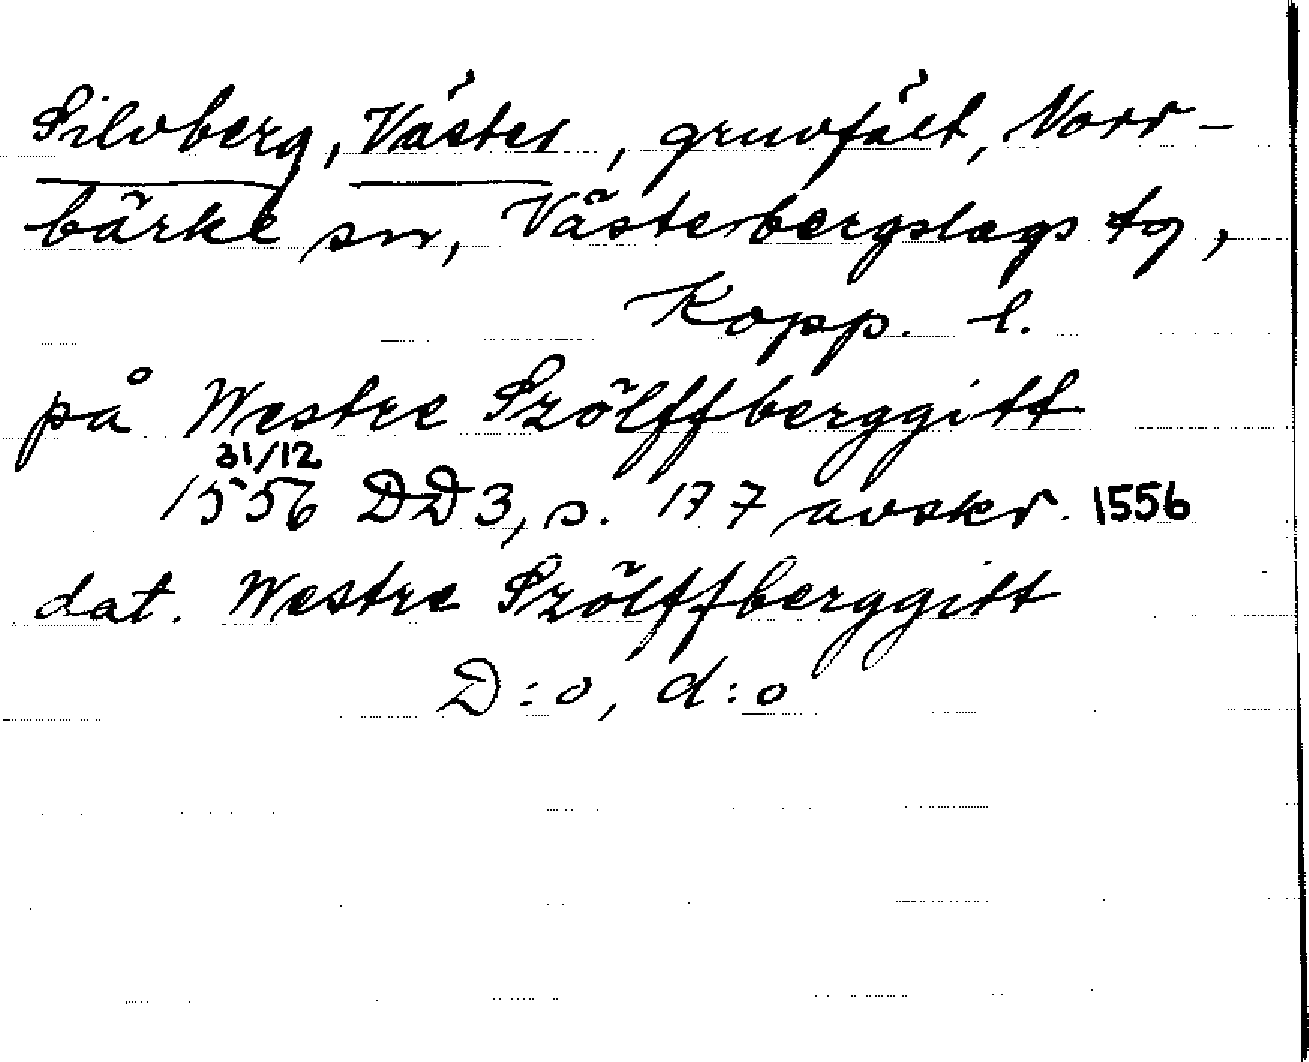 Silvberg, Väster, gruvfält, Norr-
bärke sn, Västerbergslags tg,
Kopp. l.
på Westre Szölffberggitt
31/12
1556 DD3, s. 177 avskr. 1556
dat. Westre Szölffberggitt
D:o, d:o